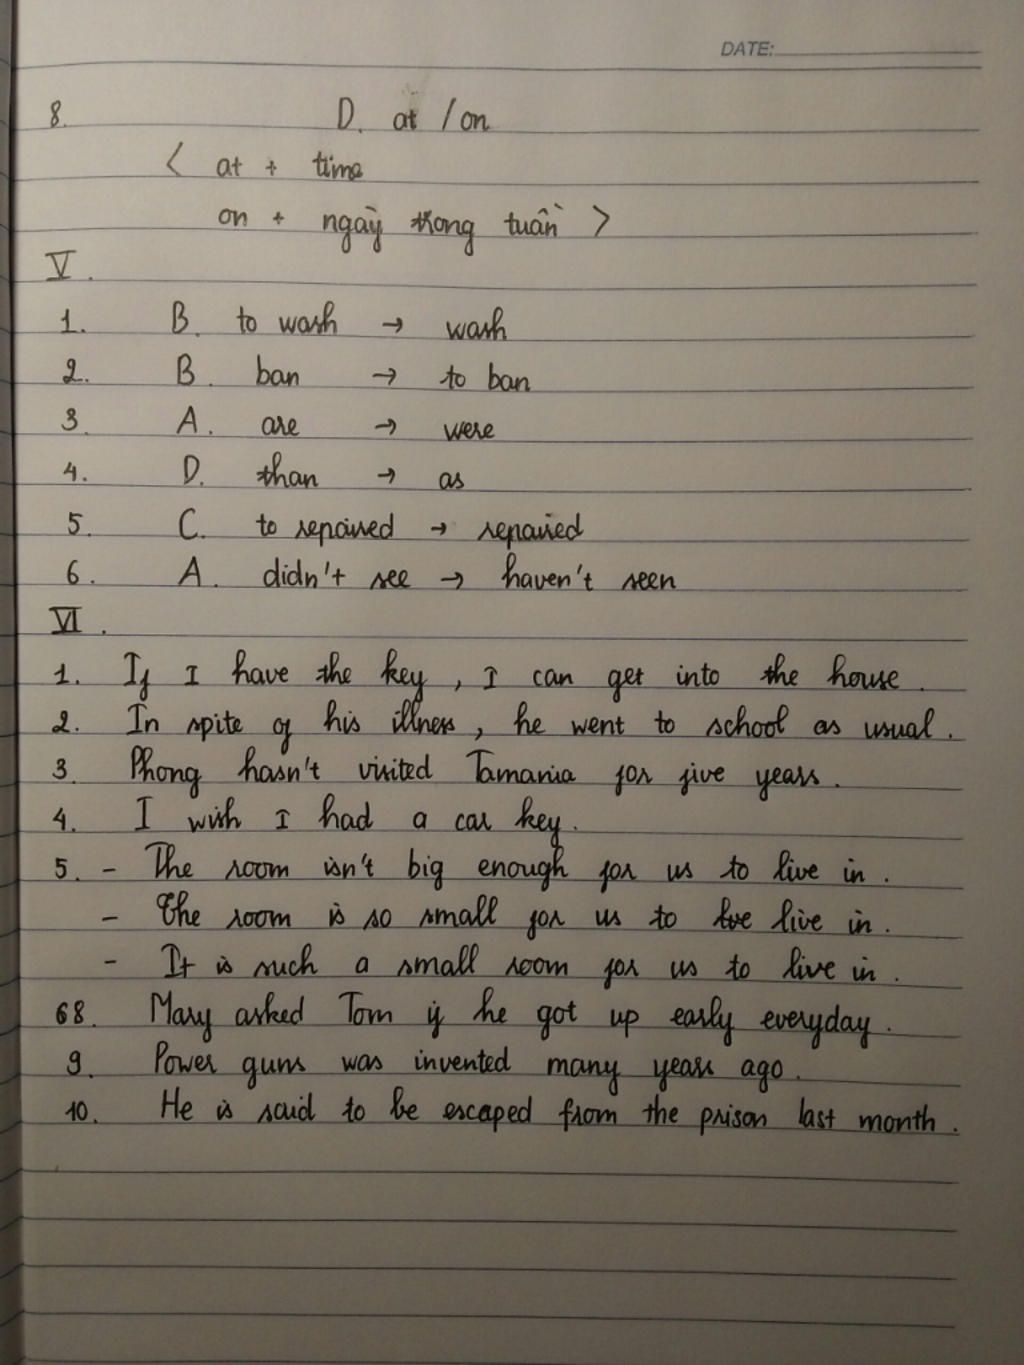 DATE:
8. D. at / on
< at + time
on + ngày trong tuần >
V.
1. B. to wash → wash
2. B. ban → to ban
3. A. are → were
4. D. than → as
5. C. to repaired → repaired
6. A. didn't see → haven't seen
VI.
1. If I have the key, I can get into the house.
2. In spite of his illness, he went to school as usual.
3. Phong hasn't visited Tamania for five years.
4. I wish I had a car key.
5. - The room isn't big enough for us to live in.
- The room is so small for us to live in.
- It is such a small room for us to live in.
68. Mary asked Tom if he got up early everyday.
9. Power guns was invented many years ago.
10. He is said to be escaped from the prison last month.